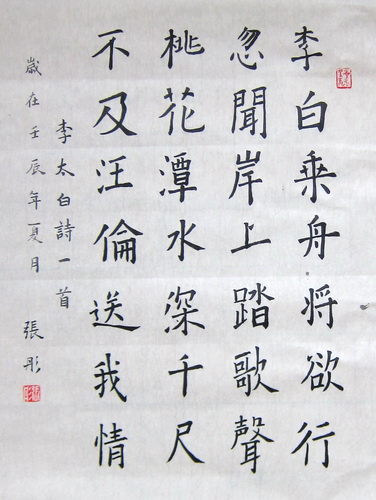 李白乘舟将欲行
忽聞岸上踏歌聲
桃花潭水深千尺
不及汪倫送我情
李太白詩一首
歲在壬辰年夏月 張彤